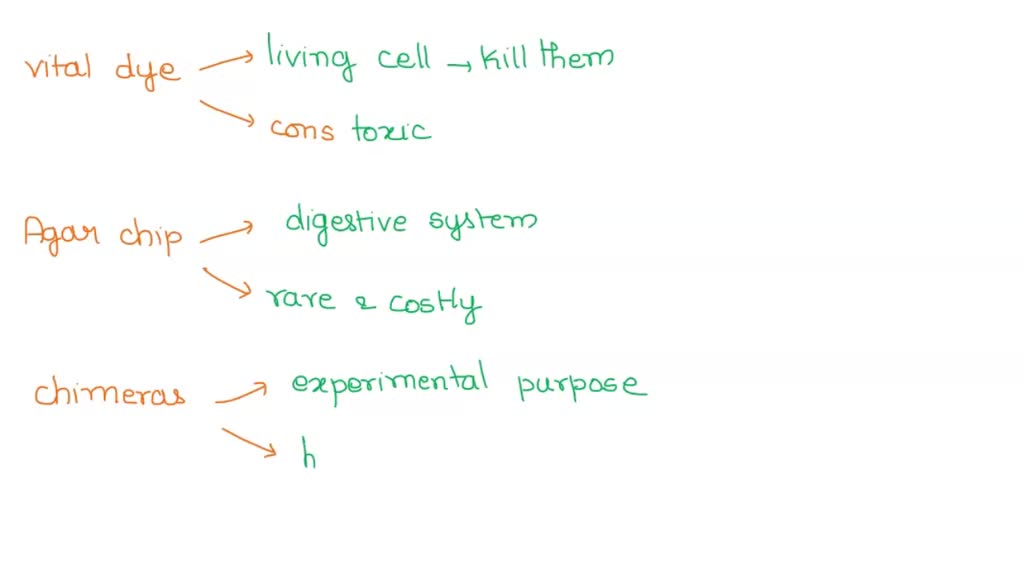 vital dye → living cell → kill them
→ cons toxic
Agar chip → digestive system
→ rare & costly
chimeras → experimental purpose
→ h